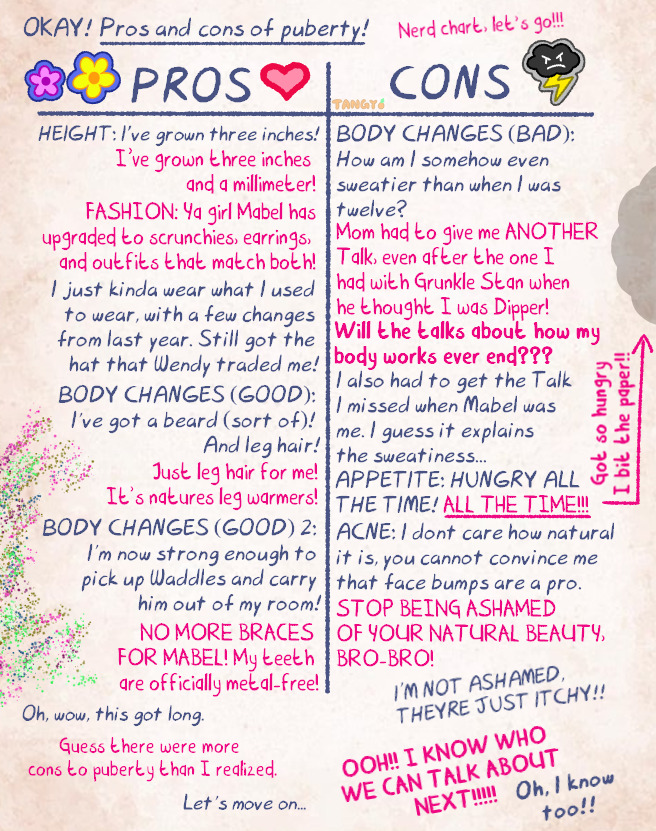 OKAY! Pros and cons of puberty!
Nerd chart, let's go!!!
PROS
CONS
TANGYd
HEIGHT: I've grown three inches!
I've grown three inches
and a millimeter!
FASHION: Ya girl Mabel has
upgraded to scrunchies, earrings,
and outfits that match both!
I just kinda wear what I used
to wear, with a few changes
from last year. Still got the
hat that Wendy traded me!
BODY CHANGES (GOOD):
I've got a beard (sort of)!
And leg hair!
Just leg hair for me!
It's natures leg warmers!
BODY CHANGES (GOOD) 2:
I'm now strong enough to
pick up Waddles and carry
him out of my room!
NO MORE BRACES
FOR MABEL! My teeth
are officially metal-free!
BODY CHANGES (BAD):
How am I somehow even
sweatier than when I was
twelve?
Mom had to give me ANOTHER
Talk, even after the one I
had with Grunkle Stan when
he thought I was Dipper!
Will the talks about how my
body works ever end???
I also had to get the Talk
I missed when Mabel was
me. I guess it explains
the sweatiness...
APPETITE: HUNGRY ALL
THE TIME! ALL THE TIME!!!
Got so hungry
I bit the paper!!
ACNE: I dont care how natural
it is, you cannot convince me
that face bumps are a pro.
STOP BEING ASHAMED
OF YOUR NATURAL BEAUTY,
BRO-BRO!
I'M NOT ASHAMED,
THEYRE JUST ITCHY!!
Oh, wow, this got long.
Guess there were more
cons to puberty than I realized.
Let's move on...
OOH!! I KNOW WHO
WE CAN TALK ABOUT
NEXT!!!!!
Oh, I know
too!!